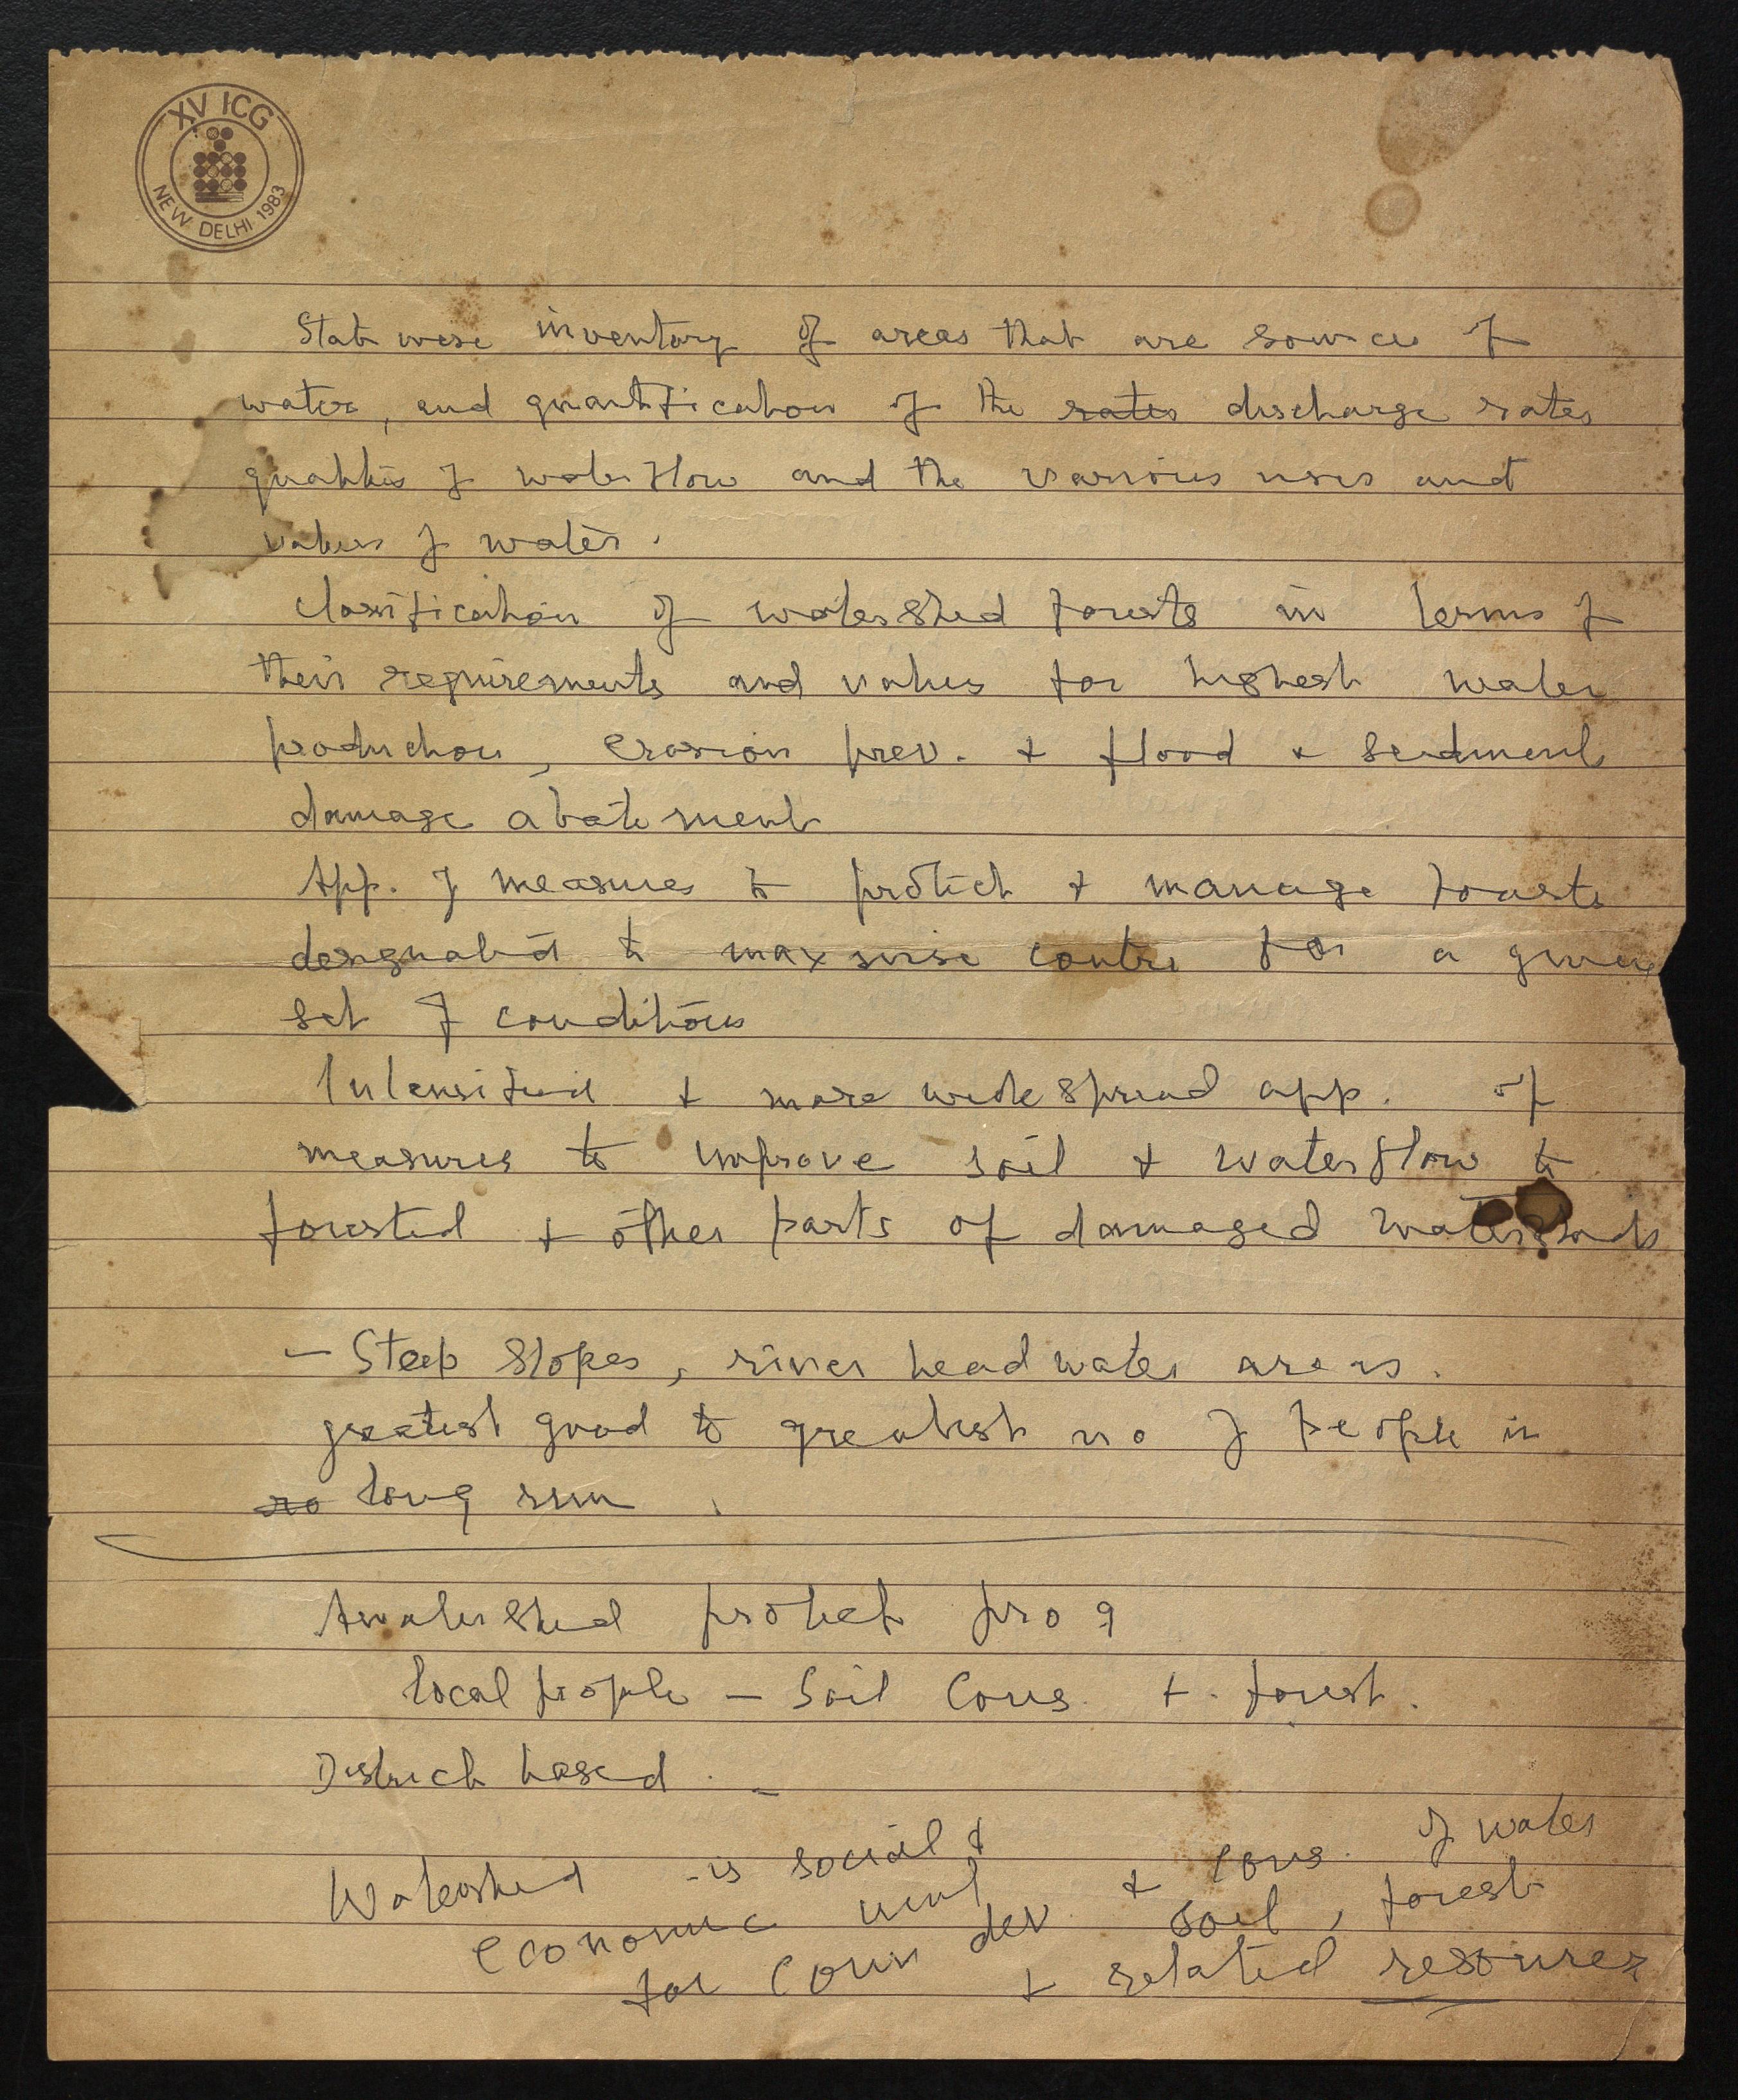 XV ICG
NEW DELHI 1983
State wise inventory of areas that are sources of
water, and quantification of the rates discharge rates
qualities of waterflow and the various uses and
values of water.
Classification of watershed forests in terms of
their requirements and values for highest water
production, erosion prev. + flood + sediment
damage abatement
App. of measures to protect + manage forests
designated to maximise contri for a given
set of conditions
Intensified + more widespread app. of
measures to improve soil + waterflow to
forested + other parts of damaged watersheds
- Steep slopes, river headwater areas.
greatest good to greatest no of people in
no long run
watershed protect prog
local people - Soil Cons. + forest.
District based. -
Watershed is social +
economic unit
for Comm dev + cons. of water
soil, forest
+ related resources